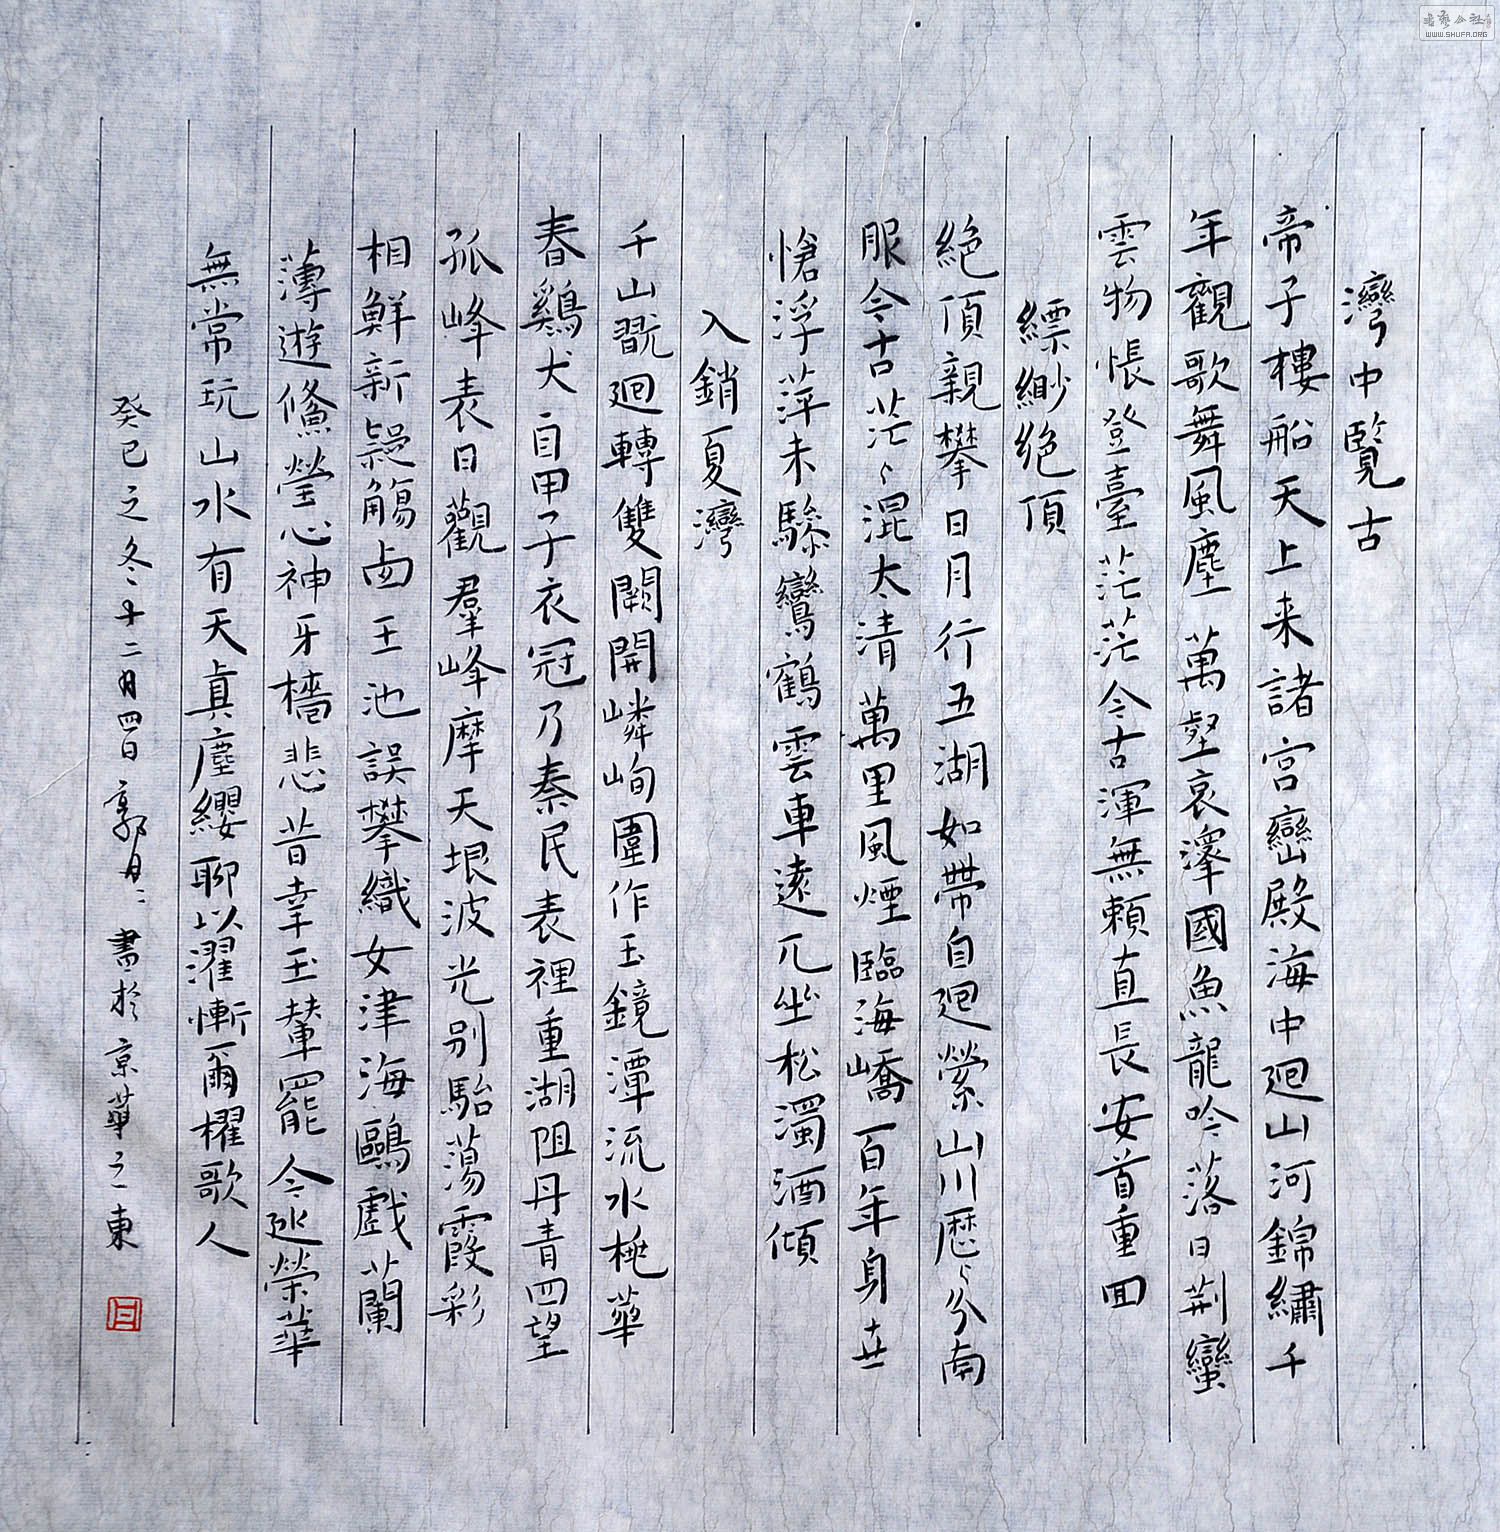 灣中覽古
帝子樓船天上来諸宮巒殿海中廻山河錦繡千
年觀歌舞風塵萬壑哀澤國魚龍吟落日荆蠻
雲物悵登臺茫茫今古渾無賴直長安首重回
縹緲绝頂
絶頂親攀日月行五湖如帶自廻縈山川歷〻分南
服今古茫〻混太清萬里風煙臨海嶠百年身世
愴浮萍未驂鸞鶴雲車遠兀坐松濁酒傾
入銷夏灣
千山翫廻轉雙闕開嶙峋圍作玉鏡潭流水桃華
春鷄犬自甲子衣冠乃秦民表裡重湖阻丹青四望
孤峰表日觀羣峰摩天垠波光别駘蕩霞彩
相鮮新觴王池誤攀織女津海鷗戲蘭
薄遊鯈瑩心神牙檣悲昔幸玉輦罷今巡榮華
無常玩山水有天真塵纓聊以濯慚爾櫂歌人
癸巳之冬十二月四日郭月二書於京華之東
WWW.SHUFA.ORG